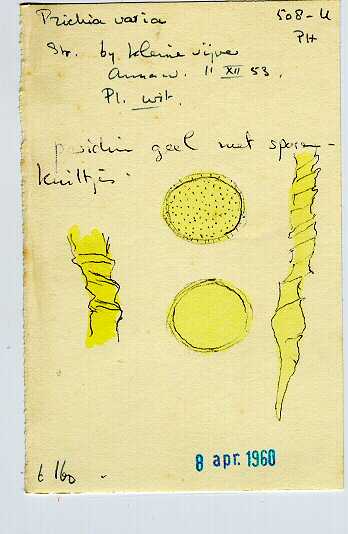 Trichia varia 508-U
PH
Str. by kleine vijver
Annaw. 11 XII 53.
Pl. wit.
peridiën geel met sporen-
knilltjes.
t 160
8 apr. 1960